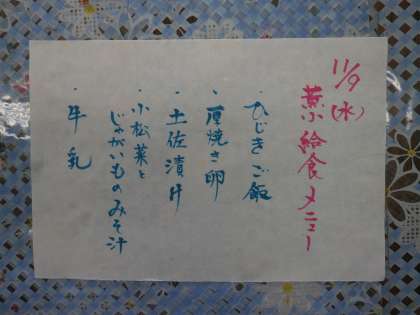 11/9(水)
給食メニュー
・ひじきご飯
・厚焼き卵
・土佐漬け
・小松菜と
じゃがいものみそ汁
・牛乳